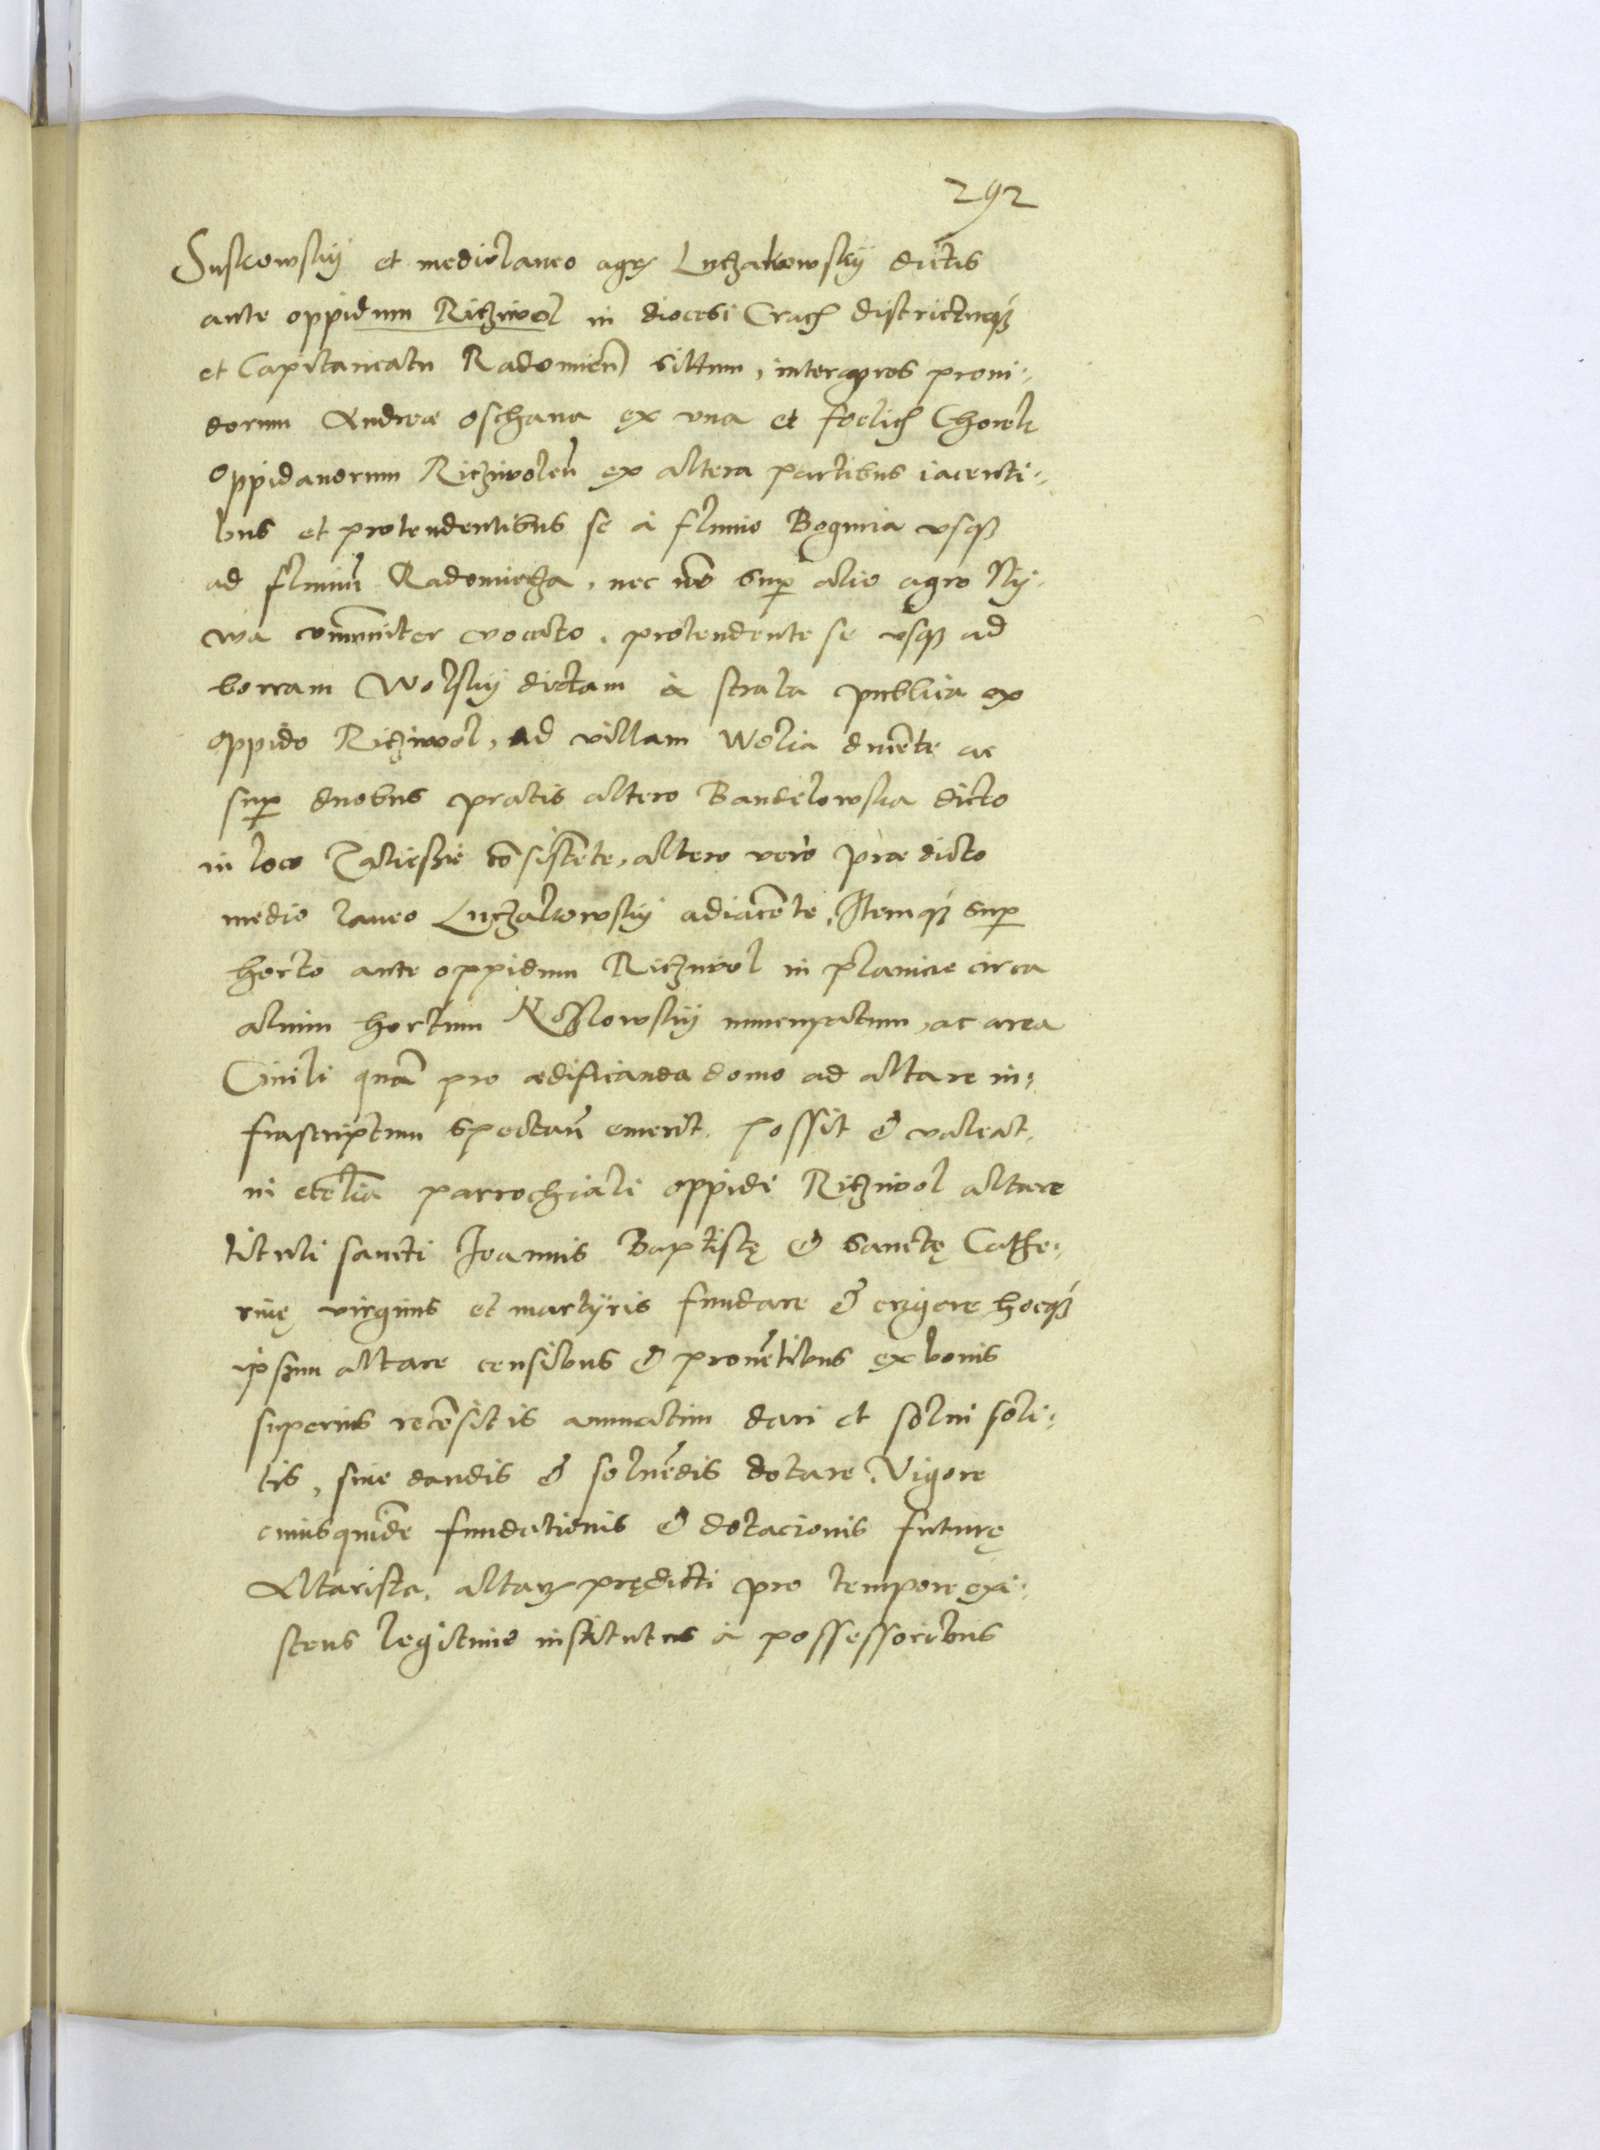 292
Suskowskij et mediolaneo agrȩ Luczakowskij dictis
ante oppidum Ricziwol in diocesi Crach districtuq3
et Capitaneatu Radomien̄ sittum, inter agros proui-
dorum Andreæ Oschana ex vna et foelich Chorek
Oppidanorum Ricziwolen̄ ex altera partibus iacenti-
bus et protendentibus se à fluuio Bogucia vsq3
ad fluuiū Radomicza, nec nō sup alio agro Ny-
wa com̄uniter vocato, protendente se vsq3 ad
borram Wolskij dictam à strata publica ex
oppido Ricziwol, ad villam Wolia ducēte ac
sup duobus pratis altero Bandelowska dicto
in loco Zaliesie cōsistēte, altero verò prædicto
medio laneo Luczakowskij adiacēte, Itemq3 sup
horto ante oppidum Ricziwol in planicie circa
alium hortum Koslowskij nuncupatum, ac area
Ciuili quā pro ædificanda domo ad altare in-
frascriptum spectan̄ emerit, possit & valeat,
in ecclīa parrochiali oppidi Ricziwol altare
tituli sancti Ioannis Baptistę & Sanctę Cathe-
rinę virginis et martyris fundare & erigere hocq3
ipsum altare censibus & prouētibus ex bonis
superius recēsitis annuatim dari et solui soli-
tis, siue dandis & soluēdis dotare, Vigore
cuiusquidē fundationis & dotacionis futurę
Altarista, altaris prędicti pro tempore exi-
stens legitime institutus à possessoribus